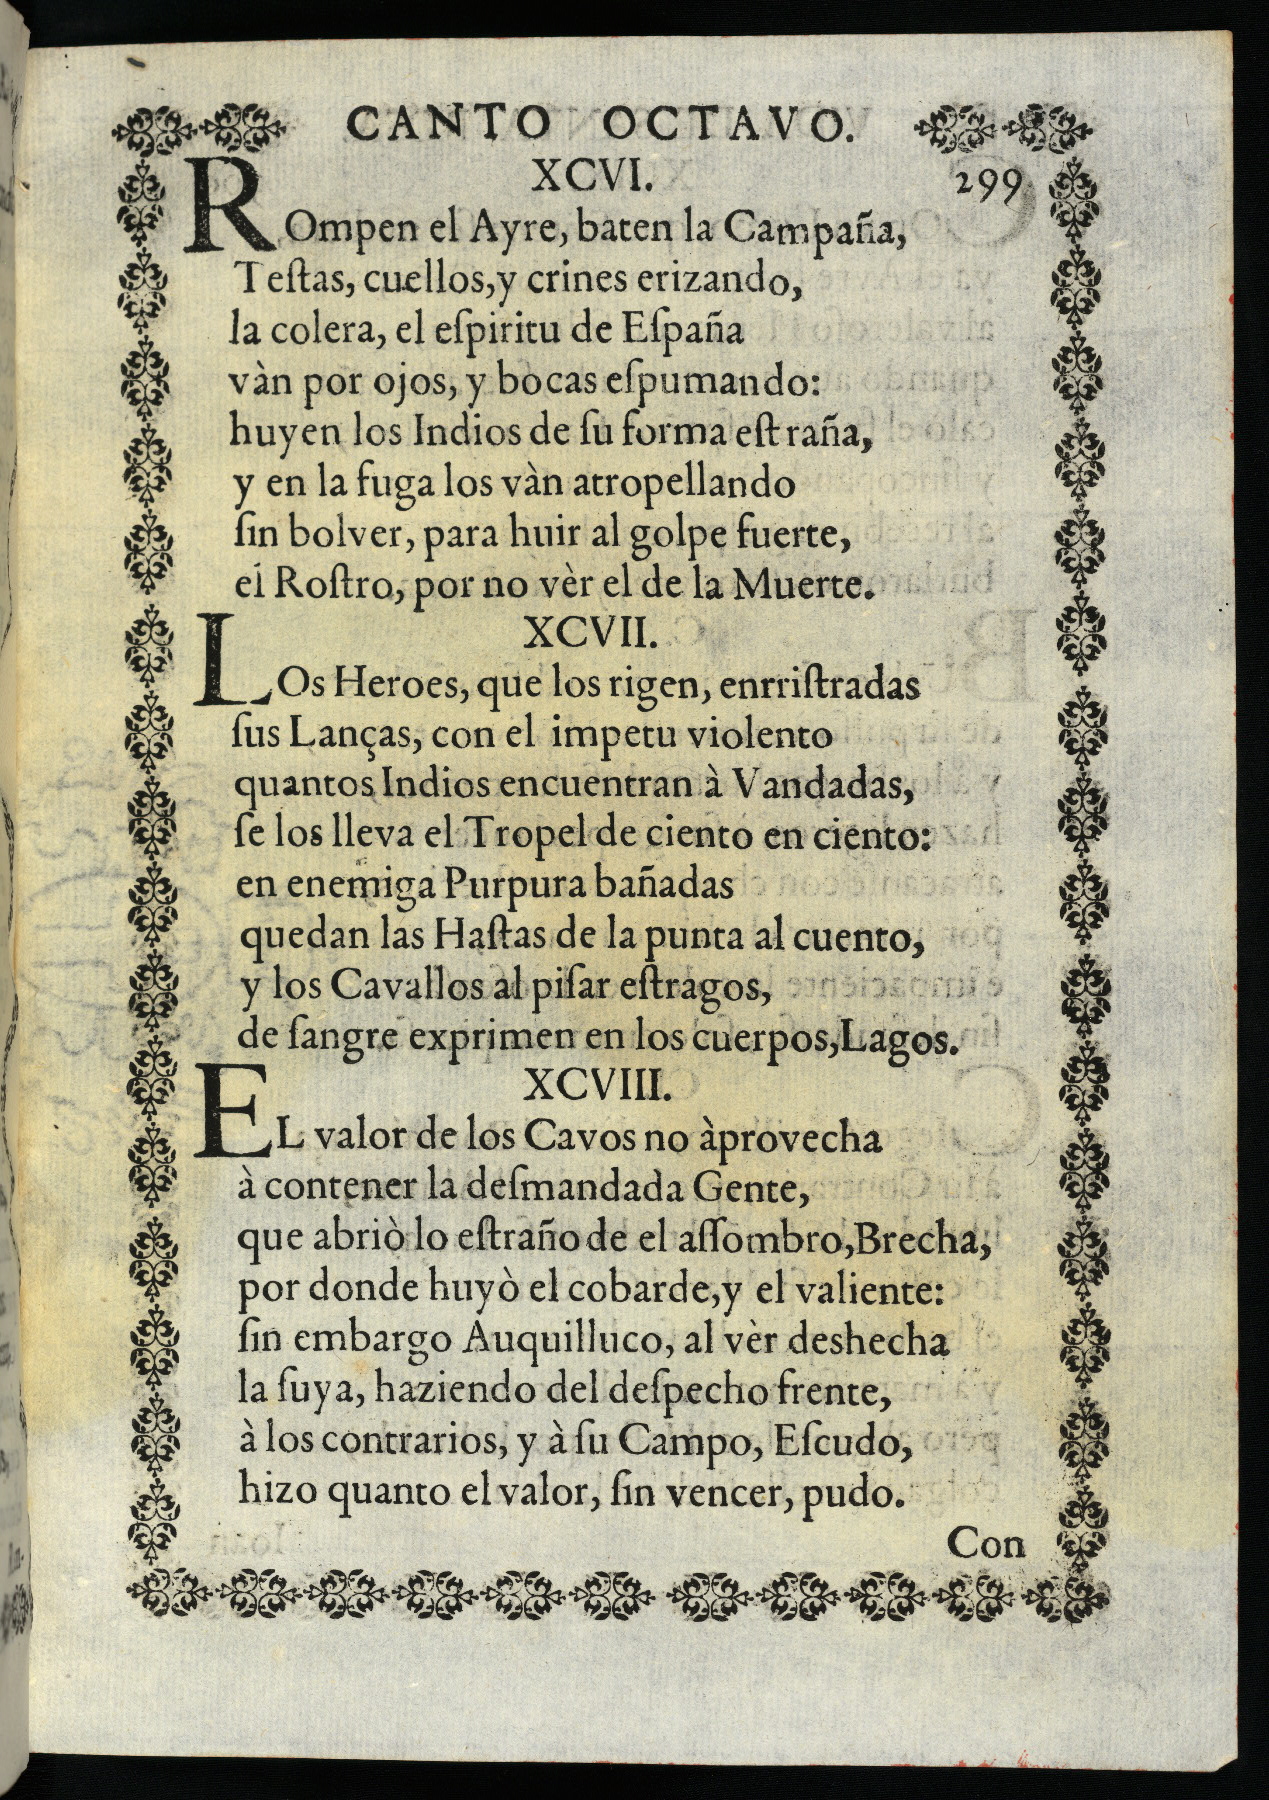 CANTO OCTAVO.
XCVI.
299
ROmpen el Ayre, baten la Campaña,
Teſtas, cuellos, y crines erizando,
la colera, el eſpiritu de Eſpaña
vàn por ojos, y bocas eſpumando:
huyen los Indios de ſu forma eſtraña,
y en la fuga los vàn atropellando
ſin bolver, para huir al golpe fuerte,
el Roſtro, por no vèr el de la Muerte.
XCVII.
LOs Heroes, que los rigen, enrriſtradas
ſus Lanças, con el impetu violento
quantos Indios encuentran à Vandadas,
ſe los lleva el Tropel de ciento en ciento:
en enemiga Purpura bañadas
quedan las Haſtas de la punta al cuento,
y los Cavallos al piſar eſtragos,
de ſangre exprimen en los cuerpos, Lagos.
XCVIII.
EL valor de los Cavos no àprovecha
à contener la deſmandada Gente,
que abriò lo eſtraño de el aſſombro, Brecha,
por donde huyò el cobarde, y el valiente:
ſin embargo Auquilluco, al vèr deshecha
la ſuya, haziendo del deſpecho frente,
à los contrarios, y à ſu Campo, Eſcudo,
hizo quanto el valor, ſin vencer, pudo.
Con